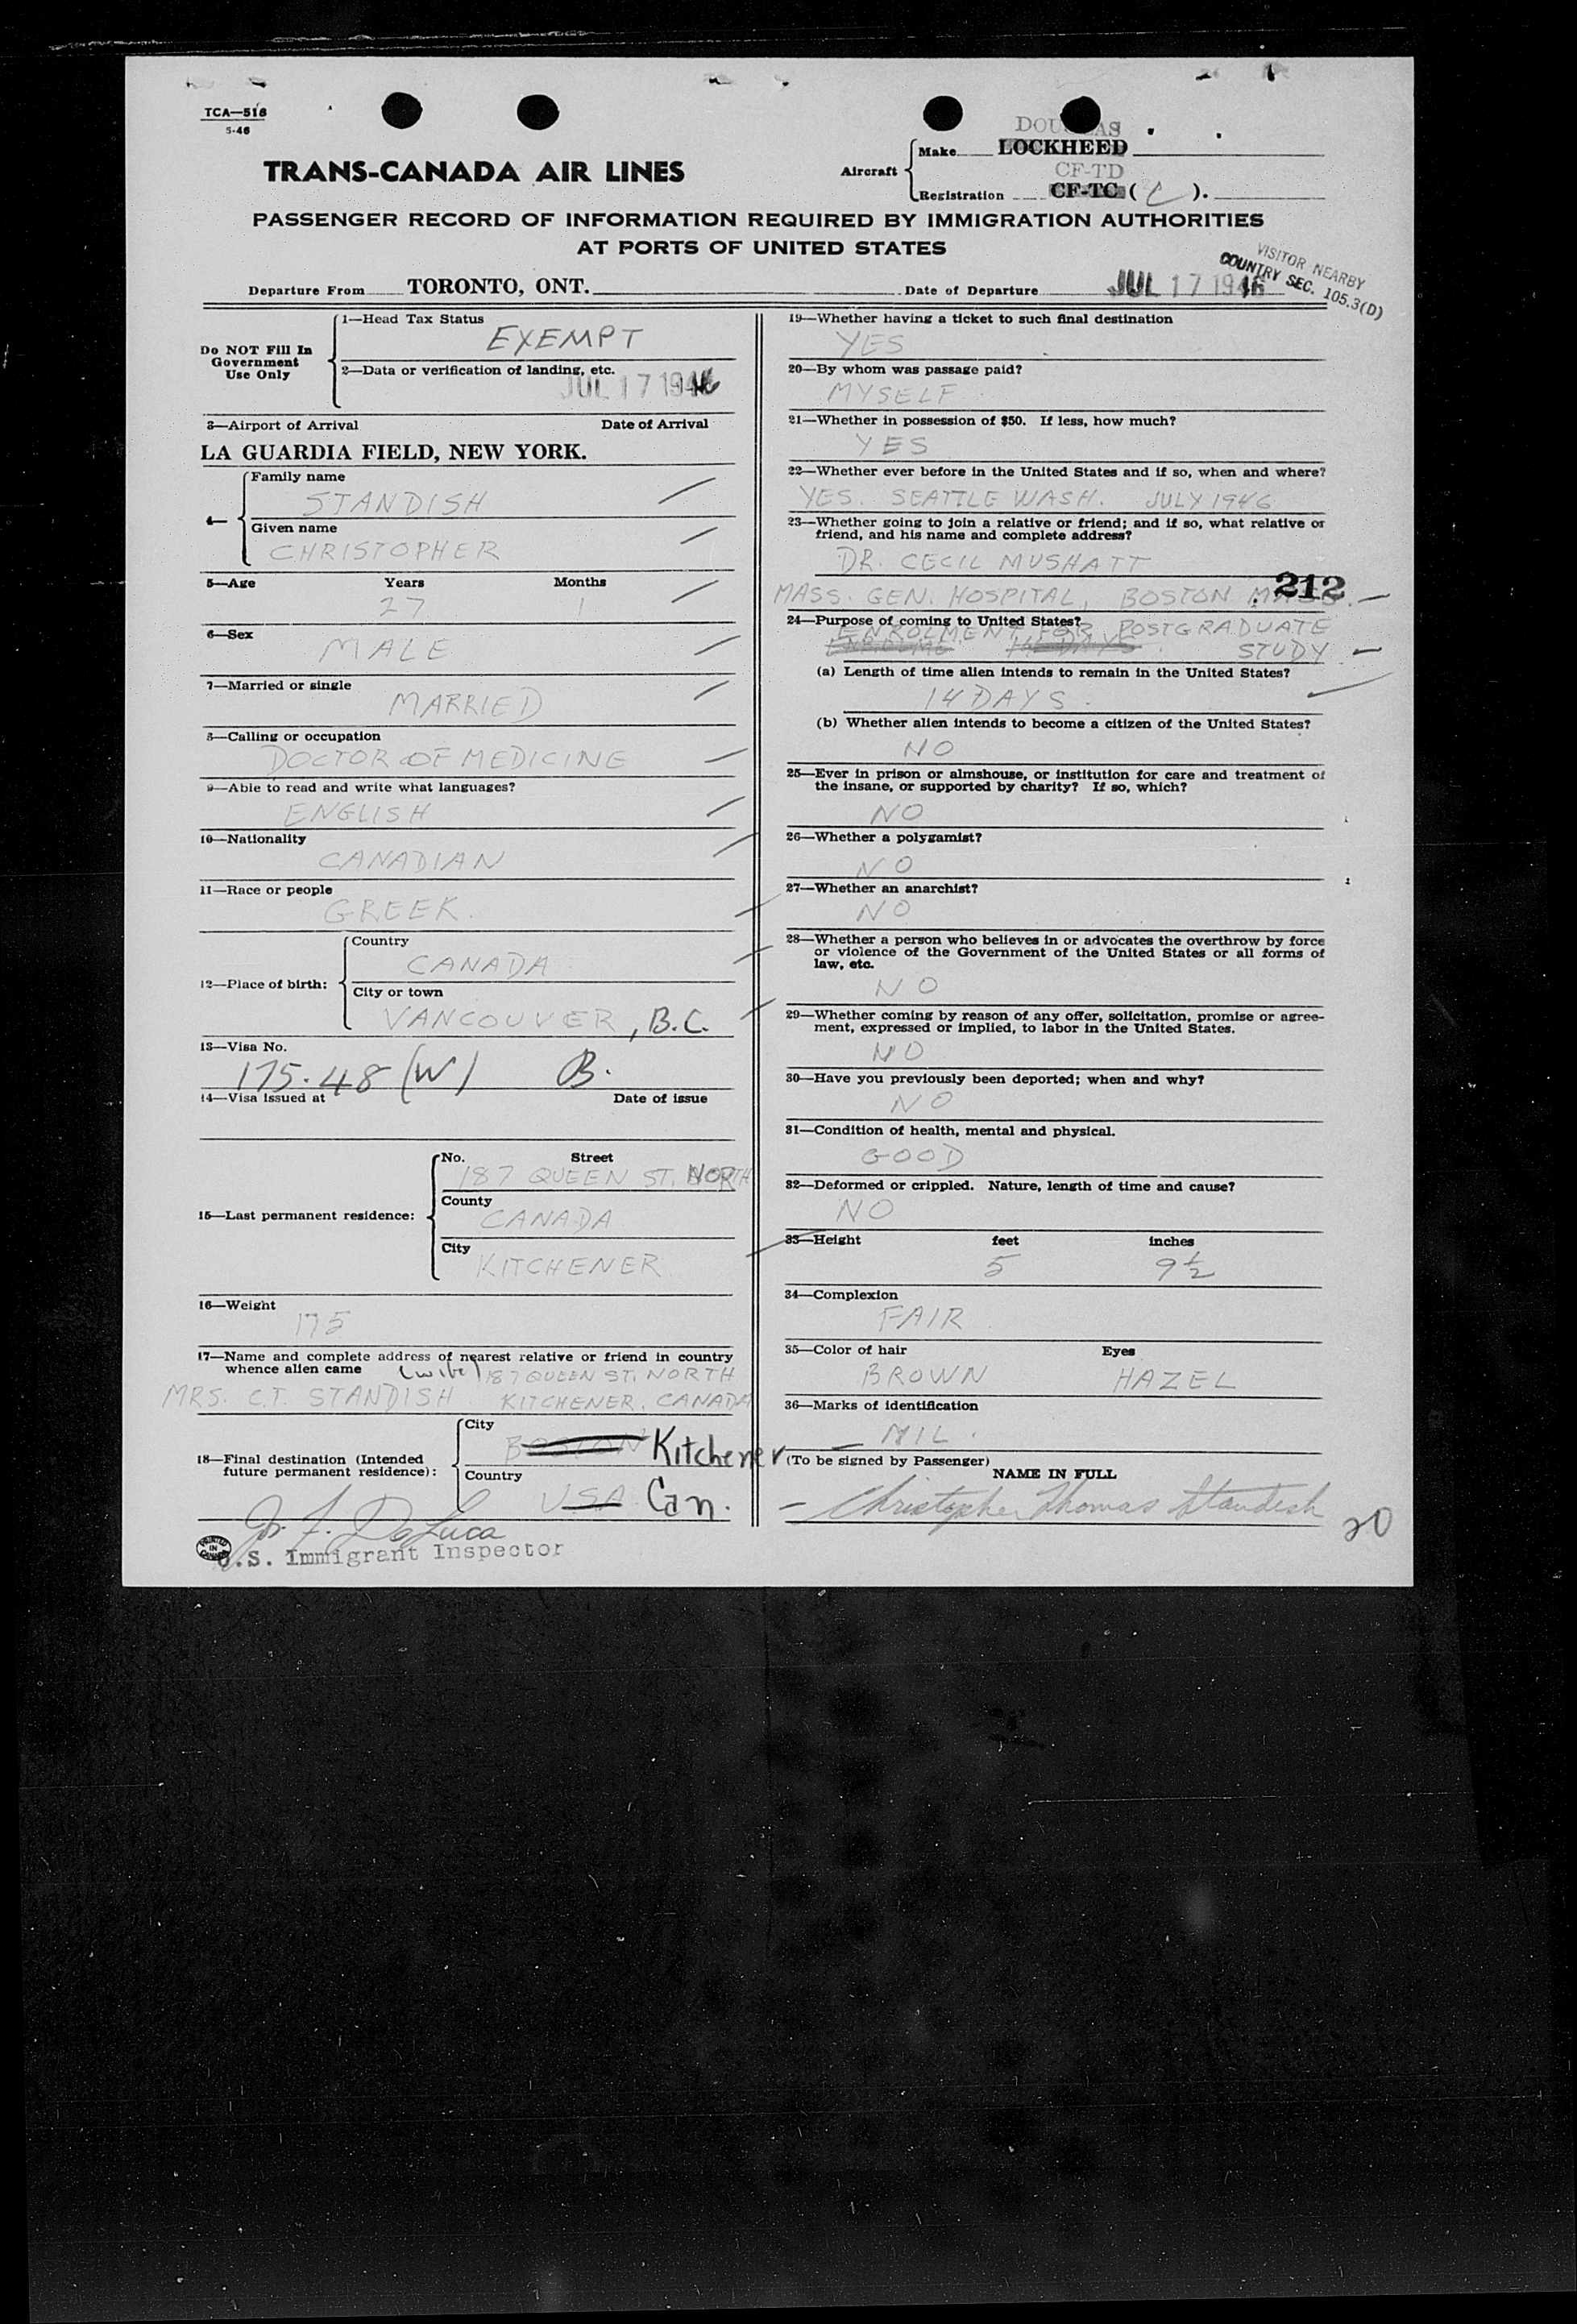 TCA—518
5-46
TRANS-CANADA AIR LINES
Aircraft
DOUGLAS
Make LOCKHEED
CF-TD
Registration CF-TC ( C ).
PASSENGER RECORD OF INFORMATION REQUIRED BY IMMIGRATION AUTHORITIES
AT PORTS OF UNITED STATES
VISITOR NEARBY
COUNTRY SEC. 105.3(D)
Departure From TORONTO, ONT. Date of Departure JUL 17 1946
Do NOT Fill In
Government
Use Only
1—Head Tax Status
EXEMPT
2—Data or verification of landing, etc.
JUL 17 1946
3—Airport of Arrival Date of Arrival
LA GUARDIA FIELD, NEW YORK.
4—
Family name
STANDISH
Given name
CHRISTOPHER
5—Age Years Months
27 1
6—Sex
MALE
7—Married or single
MARRIED
8—Calling or occupation
DOCTOR OF MEDICINE
9—Able to read and write what languages?
ENGLISH
10—Nationality
CANADIAN
11—Race or people
GREEK.
12—Place of birth:
Country
CANADA
City or town
VANCOUVER, B.C.
13—Visa No.
175.48 (W) B.
14—Visa issued at Date of issue
15—Last permanent residence:
No. Street
187 QUEEN ST. NORTH
County
CANADA
City
KITCHENER
16—Weight
175
17—Name and complete address of nearest relative or friend in country
whence alien came (wife) 187 QUEEN ST. NORTH
MRS. C.T. STANDISH KITCHENER, CANADA
18—Final destination (Intended
future permanent residence):
City
BOSTON Kitchener
Country
USA Can.
Jos. F. DeLuca
U.S. Immigrant Inspector
PRINTED IN CANADA
19—Whether having a ticket to such final destination
YES
20—By whom was passage paid?
MYSELF
21—Whether in possession of $50. If less, how much?
YES
22—Whether ever before in the United States and if so, when and where?
YES. SEATTLE WASH. JULY 1946
23—Whether going to join a relative or friend; and if so, what relative or
friend, and his name and complete address?
DR. CECIL MUSHATT
212
MASS. GEN. HOSPITAL, BOSTON MASS.
24—Purpose of coming to United States?
ENROLMENT FOR POSTGRADUATE
ENROLME 14 DAYS. STUDY
(a) Length of time alien intends to remain in the United States?
14 DAYS.
(b) Whether alien intends to become a citizen of the United States?
NO
25—Ever in prison or almshouse, or institution for care and treatment of
the insane, or supported by charity? If so, which?
NO
26—Whether a polygamist?
NO
27—Whether an anarchist?
NO
28—Whether a person who believes in or advocates the overthrow by force
or violence of the Government of the United States or all forms of
law, etc.
NO
29—Whether coming by reason of any offer, solicitation, promise or agree-
ment, expressed or implied, to labor in the United States.
NO
30—Have you previously been deported; when and why?
NO
31—Condition of health, mental and physical.
GOOD
32—Deformed or crippled. Nature, length of time and cause?
NO
33—Height feet inches
5 9½
34—Complexion
FAIR
35—Color of hair Eyes
BROWN HAZEL
36—Marks of identification
NIL.
(To be signed by Passenger)
NAME IN FULL
Christopher Thomas Standish
20